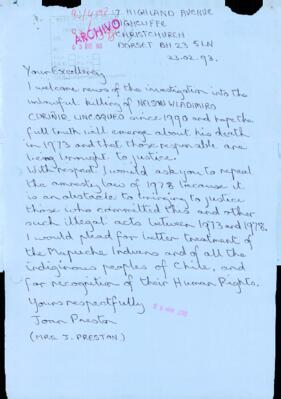 7 HIGHLAND AVENUE
HIGHCLIFFE
CHRISTCHURCH
DORSET BH23 5LN
23.02.93.
ARCHIVO
Your Excellency
I welcome news of the investigation into the
unlawful killing of NELSON WLADIMIRO
CURIÑIR LINCOQUEO since 1990 and hope the
full truth will emerge about his death
in 1973 and that those responsible are
being brought to justice.
With respect I would ask you to repeal
the amnesty law of 1978 because it
is an obstacle to bringing to justice
those who committed this and other
such illegal acts between 1973 and 1978.
I would plead for better treatment of
the Mapuche Indians and of all the
indiginous peoples of Chile, and
for recognition of their Human Rights.
Yours respectfully
Joan Preston
(MRS J. PRESTON)